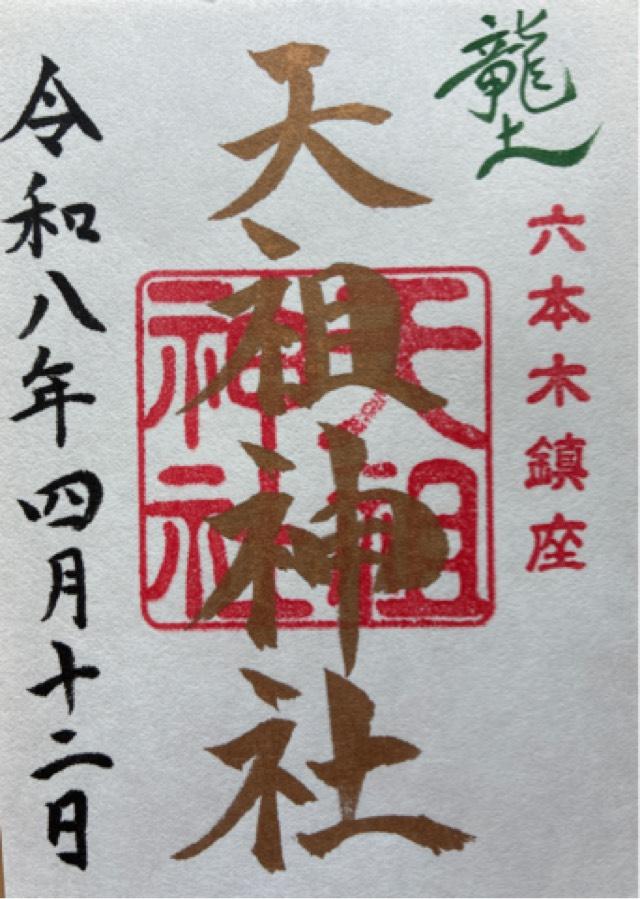 龍土
六本木鎮座
天祖神社
天祖神社
令和八年四月十二日